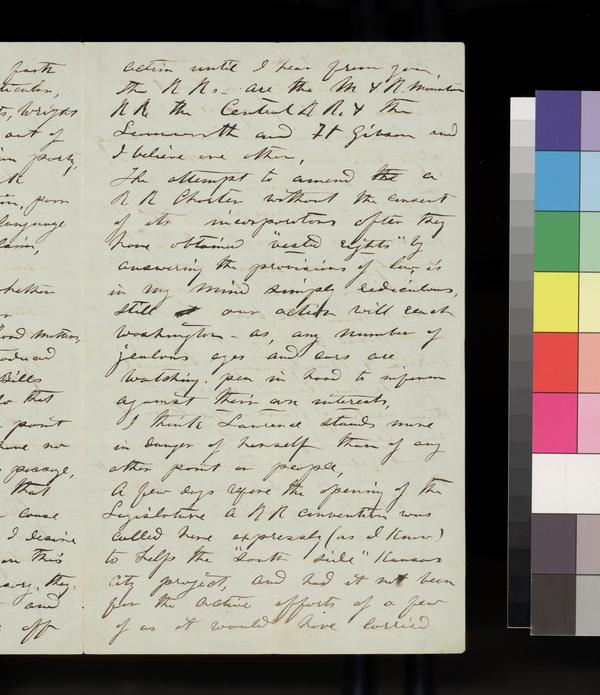 faith
ticular,
ts, Wright
out of
party,
poor
language
claim,
whether
or
Road matters,
roduced
Bills
do that
point
have no
passage,
that
cause
I desire
on this
they
and
off
action until I hear from you,
The R Rs - are the M & R. Mountain
R R, the Central R R. & the
Leavenworth and Ft Gibson and
I believe one other,
The attempt to amend the a
R R Charter without the consent
of its incorporators after they
have obtained "vested rights" by
answering the provisions of law, is
in my mind simply ridiculous,
still our action will reach
Washington - as, any number of
jealous eyes and ears are
watching. pen in hand to inform
against their own interests,
I think Lawrence stands more
in danger of herself than of any
other point or people,
A few days before the opening of the
Legislature A R R convention was
called here expressly (as I know)
to help the "South side" Kansas
city project, and had it not been
for the active efforts of a few
of us it would have carried